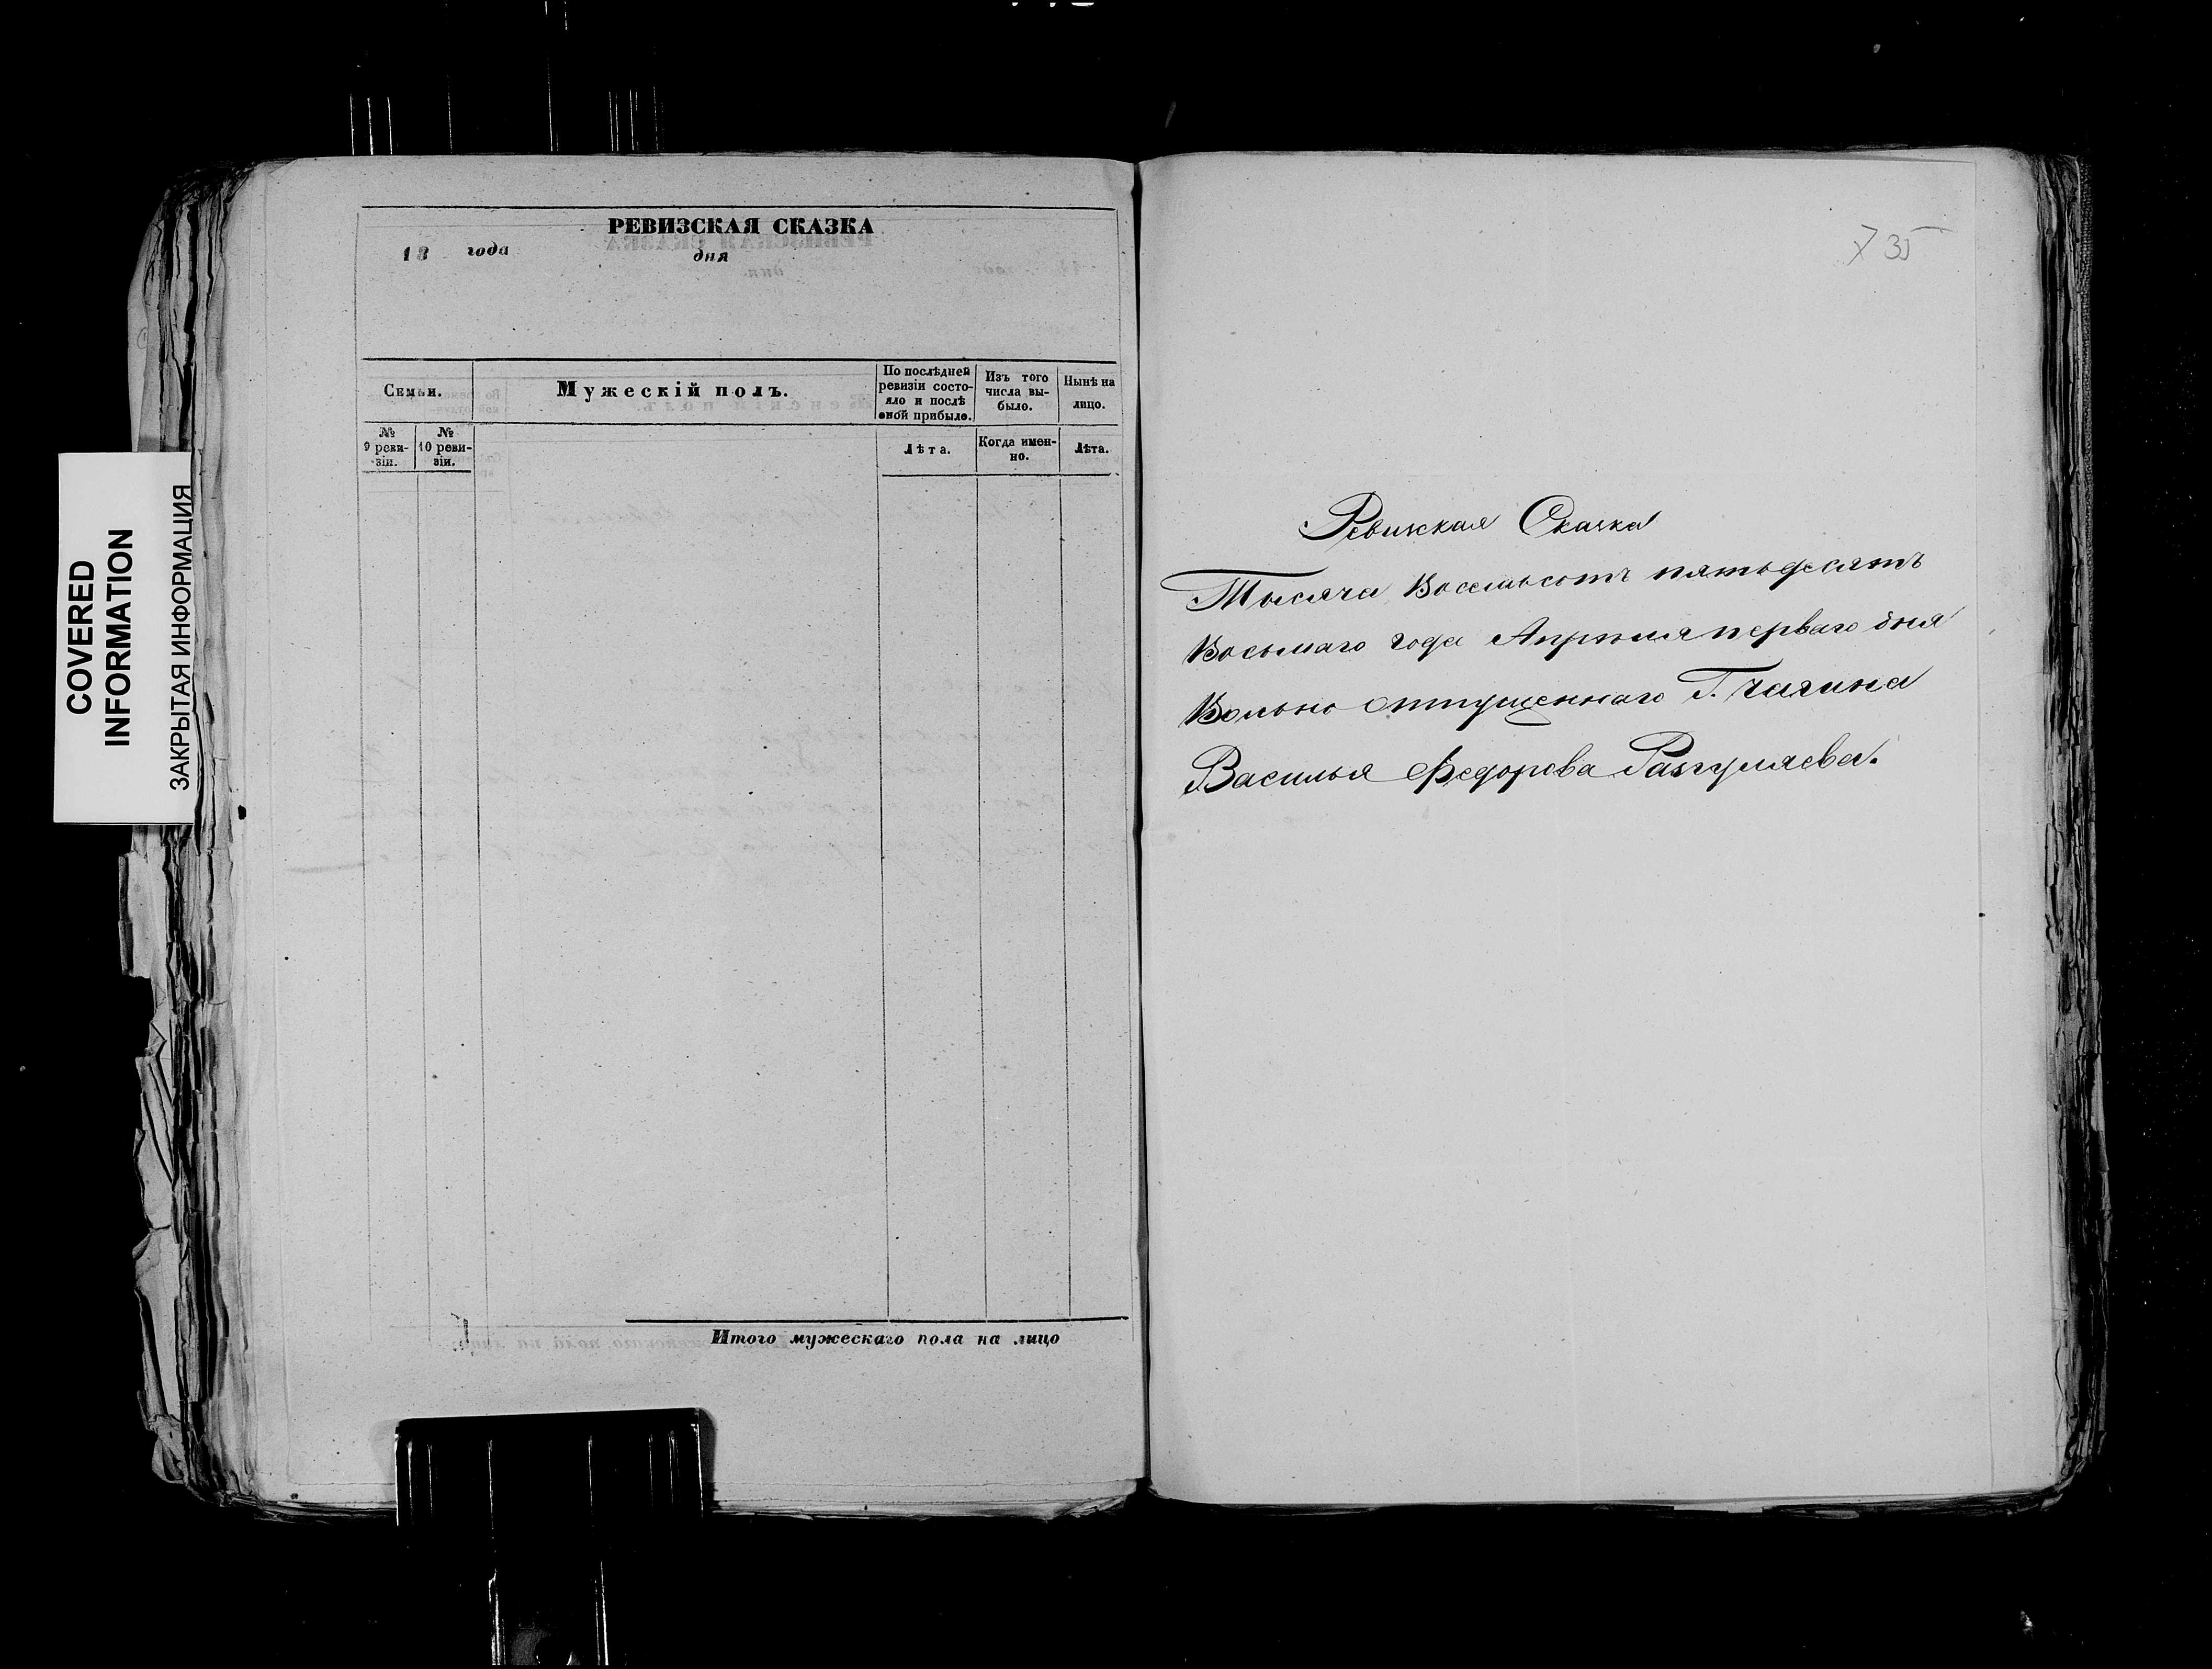 COVERED
INFORMATION
ЗАКРЫТАЯ ИНФОРМАЦИЯ
РЕВИЗСКАЯ СКАЗКА
18 года дня
Семьи.
Мужескій полъ.
По послѣдней
ревизіи состо-
яло и послѣ
оной прибыло.
Изъ того
числа вы-
было.
Нынѣ на
лицо.
№
9 реви-
зіи.
№
10 реви-
зіи.
Лѣта.
Когда имен-
но.
Лѣта.
Итого мужескаго пола на лицо
35
Ревизская Сказка
Тысяча Восемьсотъ пятьдесятъ
Восьмаго года Апрѣля перваго дня
Вольно отпущеннаго Г. Чагина
Василья Федорова Разгуляева.